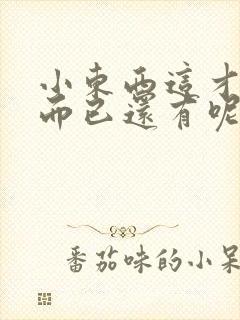 小東西這才
而已還有呢
番茄味的小呆